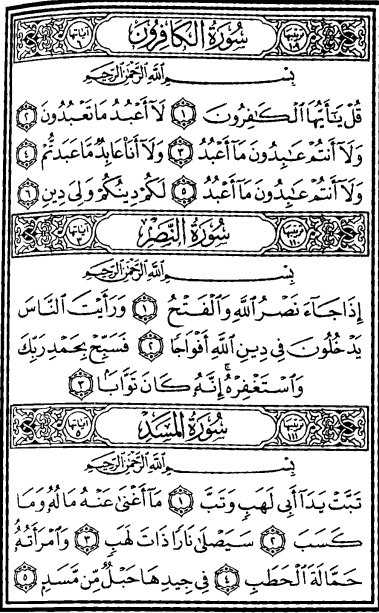 ترتيبها ١٠٩ سُورَةُ الْكَافِرُونَ آياتها ٦
بِسْمِ اللَّهِ الرَّحْمَٰنِ الرَّحِيمِ
قُلْ يَٰٓأَيُّهَا الْكَٰفِرُونَ ١ لَآ أَعْبُدُ مَا تَعْبُدُونَ ٢
وَلَآ أَنتُمْ عَٰبِدُونَ مَآ أَعْبُدُ ٣ وَلَآ أَنَا۠ عَابِدٌ مَّا عَبَدتُّمْ ٤
وَلَآ أَنتُمْ عَٰبِدُونَ مَآ أَعْبُدُ ٥ لَكُمْ دِينُكُمْ وَلِيَ دِينِ ٦
ترتيبها ١١٠ سُورَةُ النَّصْرِ آياتها ٣
بِسْمِ اللَّهِ الرَّحْمَٰنِ الرَّحِيمِ
إِذَا جَآءَ نَصْرُ اللَّهِ وَالْفَتْحُ ١ وَرَأَيْتَ النَّاسَ
يَدْخُلُونَ فِي دِينِ اللَّهِ أَفْوَاجًا ٢ فَسَبِّحْ بِحَمْدِ رَبِّكَ
وَاسْتَغْفِرْهُ ۚ إِنَّهُ كَانَ تَوَّابًۢا ٣
ترتيبها ١١١ سُورَةُ الْمَسَدِ آياتها ٥
بِسْمِ اللَّهِ الرَّحْمَٰنِ الرَّحِيمِ
تَبَّتْ يَدَآ أَبِي لَهَبٍ وَتَبَّ ١ مَآ أَغْنَىٰ عَنْهُ مَالُهُ وَمَا
كَسَبَ ٢ سَيَصْلَىٰ نَارًا ذَاتَ لَهَبٍ ٣ وَامْرَأَتُهُ
حَمَّالَةَ الْحَطَبِ ٤ فِي جِيدِهَا حَبْلٌ مِّن مَّسَدٍۭ ٥